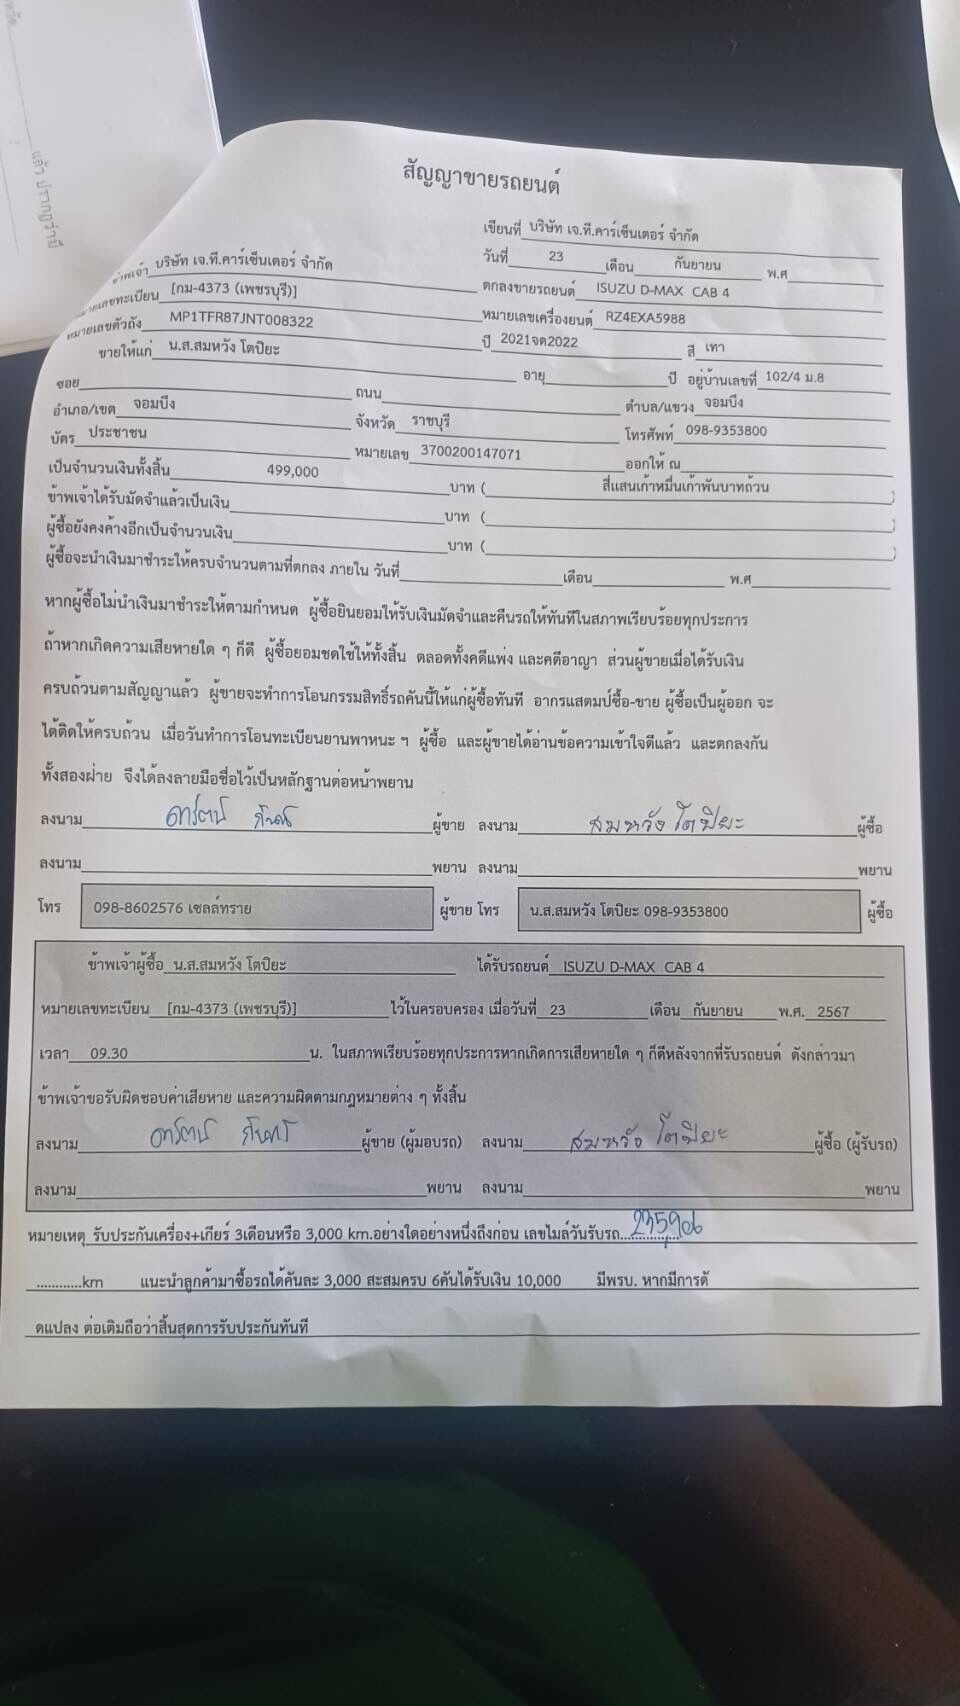 สัญญาขายรถยนต์
เขียนที่ บริษัท เจ.ที.คาร์เซ็นเตอร์ จำกัด
วันที่ 23 เดือน กันยายน พ.ศ
ข้าพเจ้า บริษัท เจ.ที.คาร์เซ็นเตอร์ จำกัด ตกลงขายรถยนต์ ISUZU D-MAX CAB 4
หมายเลขทะเบียน [กม-4373 (เพชรบุรี)] หมายเลขเครื่องยนต์ RZ4EXA5988
หมายเลขตัวถัง MP1TFR87JNT008322 ปี 2021จด2022 สี เทา
ขายให้แก่ น.ส.สมหวัง โตปิยะ อายุ ปี อยู่บ้านเลขที่ 102/4 ม.8
ซอย ถนน ตำบล/แขวง จอมบึง
อำเภอ/เขต จอมบึง จังหวัด ราชบุรี โทรศัพท์ 098-9353800
บัตร ประชาชน หมายเลข 3700200147071 ออกให้ ณ
เป็นจำนวนเงินทั้งสิ้น 499,000 บาท ( สี่แสนเก้าหมื่นเก้าพันบาทถ้วน )
ข้าพเจ้าได้รับมัดจำแล้วเป็นเงิน บาท ( )
ผู้ซื้อยังคงค้างอีกเป็นจำนวนเงิน บาท ( )
ผู้ซื้อจะนำเงินมาชำระให้ครบจำนวนตามที่ตกลง ภายใน วันที่ เดือน พ.ศ
หากผู้ซื้อไม่นำเงินมาชำระให้ตามกำหนด ผู้ซื้อยินยอมให้รับเงินมัดจำและคืนรถให้ทันทีในสภาพเรียบร้อยทุกประการ
ถ้าหากเกิดความเสียหายใด ๆ ก็ดี ผู้ซื้อยอมชดใช้ให้ทั้งสิ้น ตลอดทั้งคดีแพ่ง และคดีอาญา ส่วนผู้ขายเมื่อได้รับเงิน
ครบถ้วนตามสัญญาแล้ว ผู้ขายจะทำการโอนกรรมสิทธิ์รถคันนี้ให้แก่ผู้ซื้อทันที อากรแสตมป์ซื้อ-ขาย ผู้ซื้อเป็นผู้ออก จะ
ได้ติดให้ครบถ้วน เมื่อวันทำการโอนทะเบียนยานพาหนะ ฯ ผู้ซื้อ และผู้ขายได้อ่านข้อความเข้าใจดีแล้ว และตกลงกัน
ทั้งสองฝ่าย จึงได้ลงลายมือชื่อไว้เป็นหลักฐานต่อหน้าพยาน
ลงนาม ผู้ขาย ลงนาม สมหวัง โตปิยะ ผู้ซื้อ
ลงนาม พยาน ลงนาม พยาน
โทร 098-8602576 เซลล์ทราย ผู้ขาย โทร น.ส.สมหวัง โตปิยะ 098-9353800 ผู้ซื้อ
ข้าพเจ้าผู้ซื้อ น.ส.สมหวัง โตปิยะ ได้รับรถยนต์ ISUZU D-MAX CAB 4
หมายเลขทะเบียน [กม-4373 (เพชรบุรี)] ไว้ในครอบครอง เมื่อวันที่ 23 เดือน กันยายน พ.ศ. 2567
เวลา 09.30 น. ในสภาพเรียบร้อยทุกประการหากเกิดการเสียหายใด ๆ ก็ดีหลังจากที่รับรถยนต์ ดังกล่าวมา
ข้าพเจ้าขอรับผิดชอบค่าเสียหาย และความผิดตามกฎหมายต่าง ๆ ทั้งสิ้น
ลงนาม ผู้ขาย (ผู้มอบรถ) ลงนาม สมหวัง โตปิยะ ผู้ซื้อ (ผู้รับรถ)
ลงนาม พยาน ลงนาม พยาน
หมายเหตุ รับประกันเครื่อง+เกียร์ 3เดือนหรือ 3,000 km.อย่างใดอย่างหนึ่งถึงก่อน เลขไมล์วันรับรถ 235,906
...........km แนะนำลูกค้ามาซื้อรถได้คันละ 3,000 สะสมครบ 6คันได้รับเงิน 10,000 มีพรบ. หากมีการดั
ดแปลง ต่อเติมถือว่าสิ้นสุดการรับประกันทันที